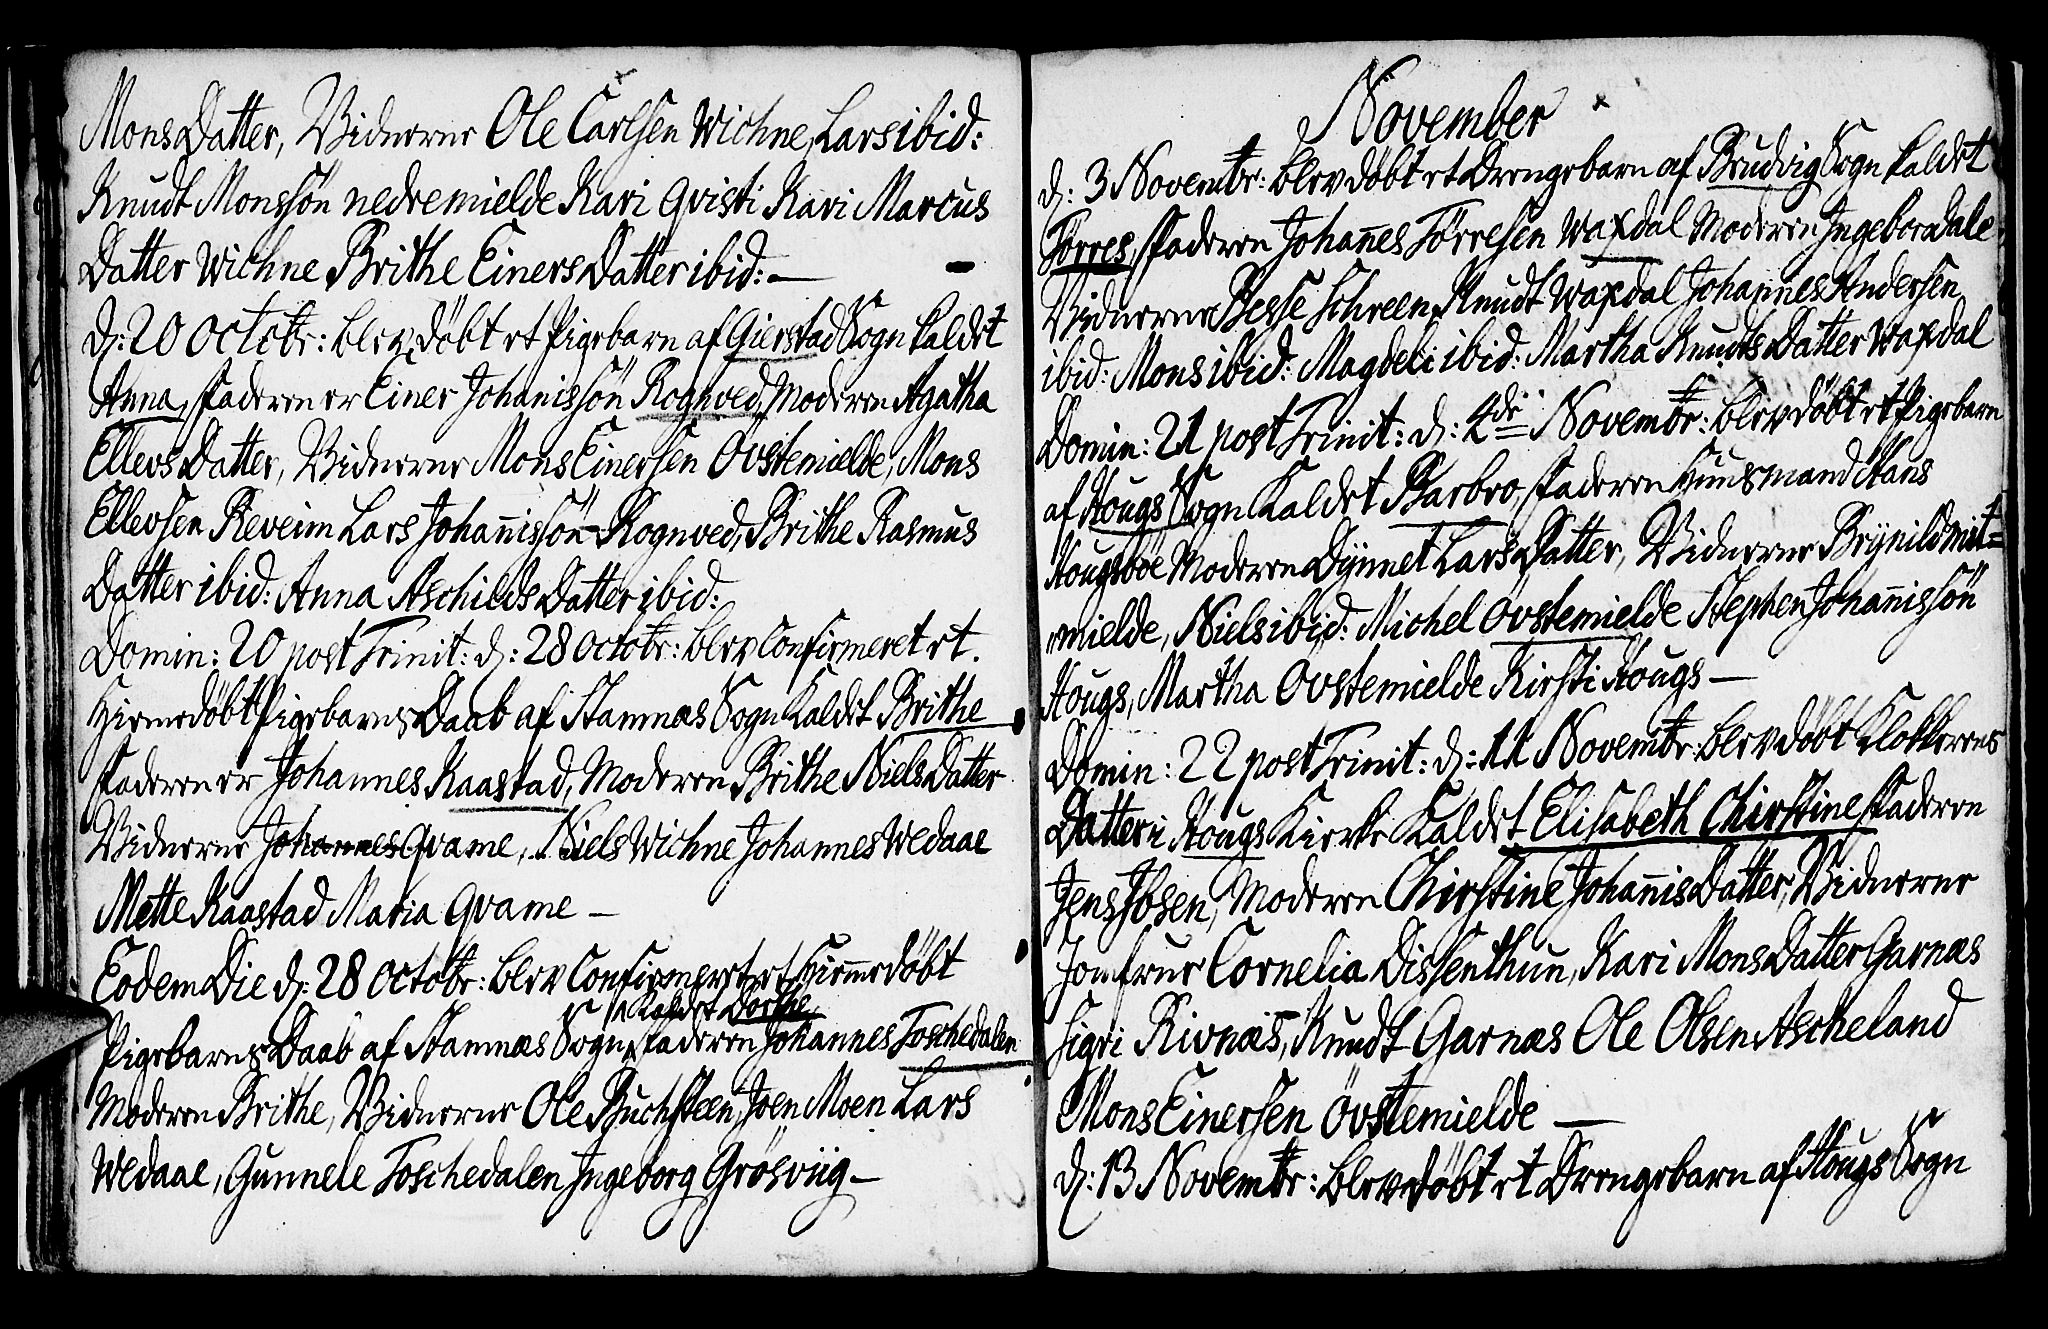 Mons Datter, Vidnerne Ole Carlsen Wichne, Lars ibid:
Knudt Monssön nedremielde Kari Qvisti Kari Marcus
Datter Wichne Brithe Einers Datter ibid: —
D: 20 Octobr: blev döbt et Pigebarn af Gierstad Sogn kaldet
Anna, Faderen er Einer Johanissön Rognved, Moderen Agatha
Ellevs Datter, Vidnerne Mons Einersen Övstemielde, Mons
Ellevsen Reveim Lars Johanissön Rognved, Brithe Rasmus
Datter ibid: Anna Aschilds Datter ibid:
Domin: 20 post Trinit: d: 28 Octobr: blev Confirmeret et
Hiemedöbt Pigebarns Daab af Stamnæs Sogn Kaldet Brithe
Faderen er Johannes Kaastad, Moderen Brithe Niels Datter
Vidnerne Johannes Qvame, Niels Wichne Johannes Wedaae
Mette Kaastad Maria Qvame —
Eodem Die d: 28 Octobr: blev Confirmeret et Hiemedöbt
Kaldet Dorthe
Pigebarns Daab af Stamnæs Sogn, Faderen Johannes Toschedalen
Moderen Brithe, Vidnerne Ole Buchsteen, Joen Moen Lars
Wedaae, Gunnele Toschedalen Ingeborg Grösviig —
November
d: 3 Novembr: blev döbt et Drengebarn af Brudvig Sogn kaldet
Törres, Faderen Johanes Törresen Waxdal Moderen Ingebor Dale
Vidnerne Besse Schreen, Knudt Waxdal Johannes Andersen
ibid: Mons ibid: Magdeli ibid: Martha Knudts Datter Waxdal
Domin: 21 post Trinit: d: 4de Novembr: blev döbt et Pigebarn
af Hougs Sogn Kaldet Barbro, Faderen Huusmand Hans
Hougsböe Moderen Dynnet Lars Datter, Vidnerne Brynild mit=
mielde, Niels ibid: Michel Övstemielde Stephen Johanissön
Hougs, Martha Övstemielde Kirsti Hougs —
Domin: 22 post Trinit: d: 11 Novembr: blev döbt Klokkerens
Datter i Hougs Kirke Kaldet Elisabeth Chirstine Faderen
Jens Ibsen, Moderen Chirstine Johanis Datter, Vidnerne
Jomfrue Cornelia Dissenthun, Kari Mons Datter Garnæs
Sigri Rivnæs, Knudt Garnæs Ole Olsen Ascheland
Mons Einersen Övstemielde —
d: 13 Novembr: blev döbt et Drengebarn af Hougs Sogn